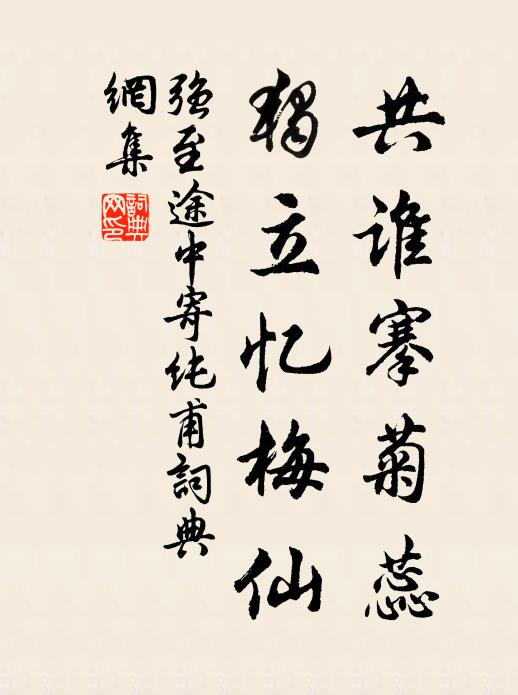 共谁搴菊蕊
独立忆梅仙
强至途中寄纯甫詞典
網集
詞典
网印